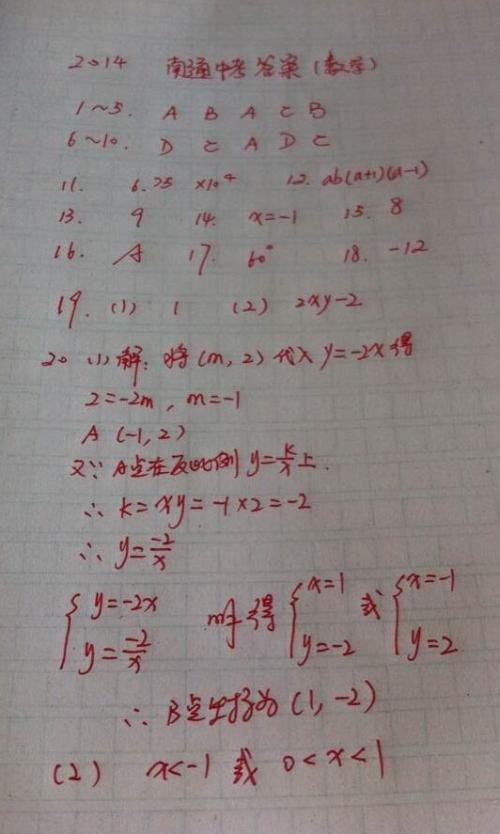 2014 南通中考答案(数学)
1~5. A B A C B
6~10. D C A D C
11. 6.75 ×10⁴ 12. ab(a+1)(a-1)
13. 9 14. x=-1 15. 8
16. A 17. 60° 18. -12
19. (1) 1 (2) 2xy-2
20 (1) 解: 将 (m, 2) 代入 y=-2x得
2=-2m, m=-1
A (-1, 2)
又∵ A点在反比例 y=k/x上.
∴ k=xy=-1×2=-2
∴ y=-2/x
{ y=-2x y=-2/x 解得 { x=1 y=-2 或 { x=-1 y=2
∴ B点坐标为 (1, -2)
(2) x<-1 或 0<x<1